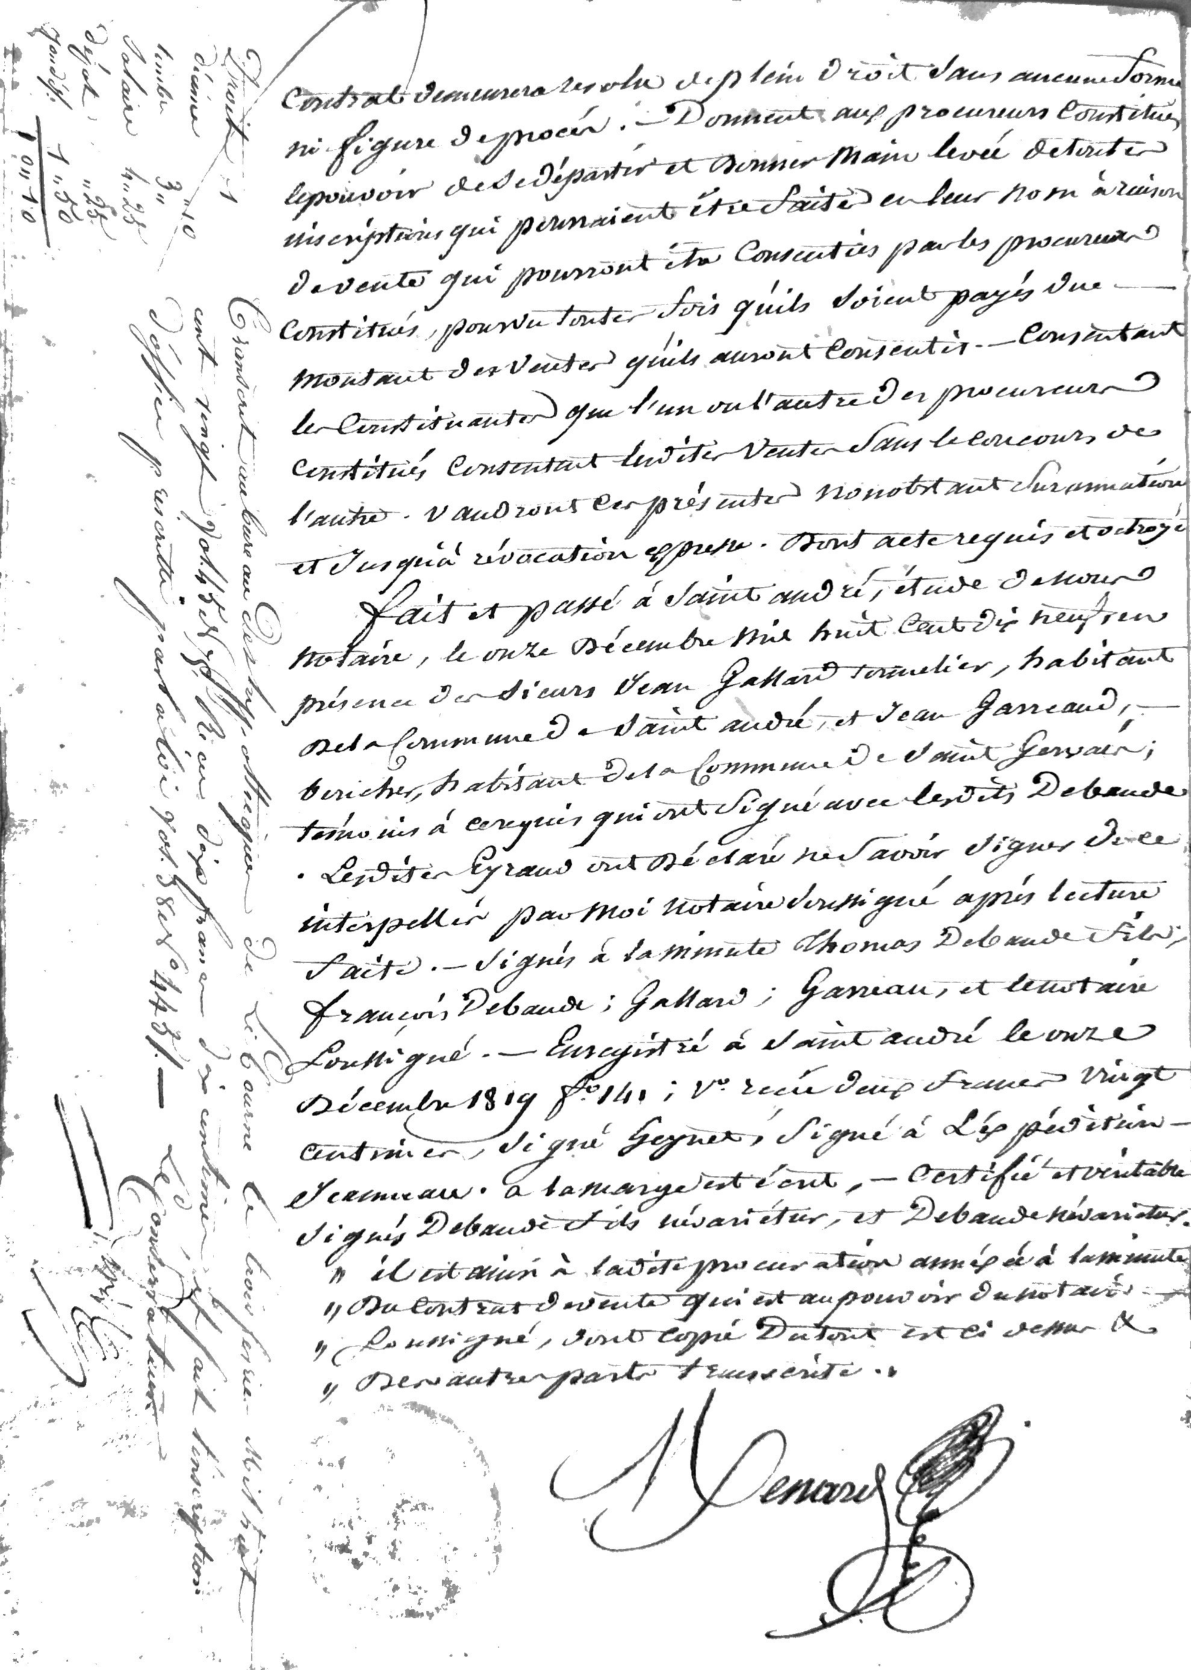 Contrat demeurera resolu de plein droit sans aucune forme
ni figure de procés. — Donnent aux procureurs Constitués
le pouvoir de se départir et Donner Main levée de toutes
inscriptions qui pourraient être faites en leur nom à raison
de vente qui pourront être Consenties par les procureurs
Constitués, pourvu toutes fois qu'ils soient payés du —
Montant des Ventes qu'ils auront Consentis. — Consentant
les Constituantes que l'un ou l'autre des procureurs
Constitués Consentant lesdites Ventes sans le concours de
l'autre. Vaudront ces présentes nonobstant surannation
et Jusqu'à révocation expresse. Dont acte requis et octroyé
fait et passé à Saint andré, étude de nous
Notaire, le onze Décembre Mil huit Cent dix neuf, en
présence des Sieurs Jean Gallard tonnelier, habitant
De la Commune de Saint andré, et Jean Garreaud, —
habitant de la Commune de Saint Gervais;
temoins à ce requis qui ont signé avec lesdits Debaude
. Lesdites Eyraud ont Déclaré ne savoir signer de ce
interpellés par Moi Notaire soussigné aprés lecture
faite. — Signés à la minute Thomas Debaude fils;
françois Debaude; Gallard; Garreau, et le notaire
Soussigné. — Enregistré à Saint andré le onze
Décembre 1819 f.o 141; V.o recu deux francs Vingt
Centimes, Signé Geynet, Signé à L'expédition —
Jeanneau. a la marge est écrit, — Certifié et véritable
Signés Debaude fils névariétur, et Debaude névarietur.
" il est ainsi à ladite procuration annéxée à la minute
" Du Contrat de vente qui est au pouvoir du notaire —
" Soussigné, dont copie Du tout est ci dessus &
" Des autres parts transcrite. "
Menard
Droit 1
décime "10
timbre 3"
Salaire 4"25
dépot "25
1"50
10"10
Transcrit au bureau des hypotheques de Libourne le trois Mil huit
cent vingt vol. 45 N.o Reçu dix francs dix centimes, et fait l'inscription
d'office prescrite par la loi vol. 58 N.o 448. — Le Conservateur